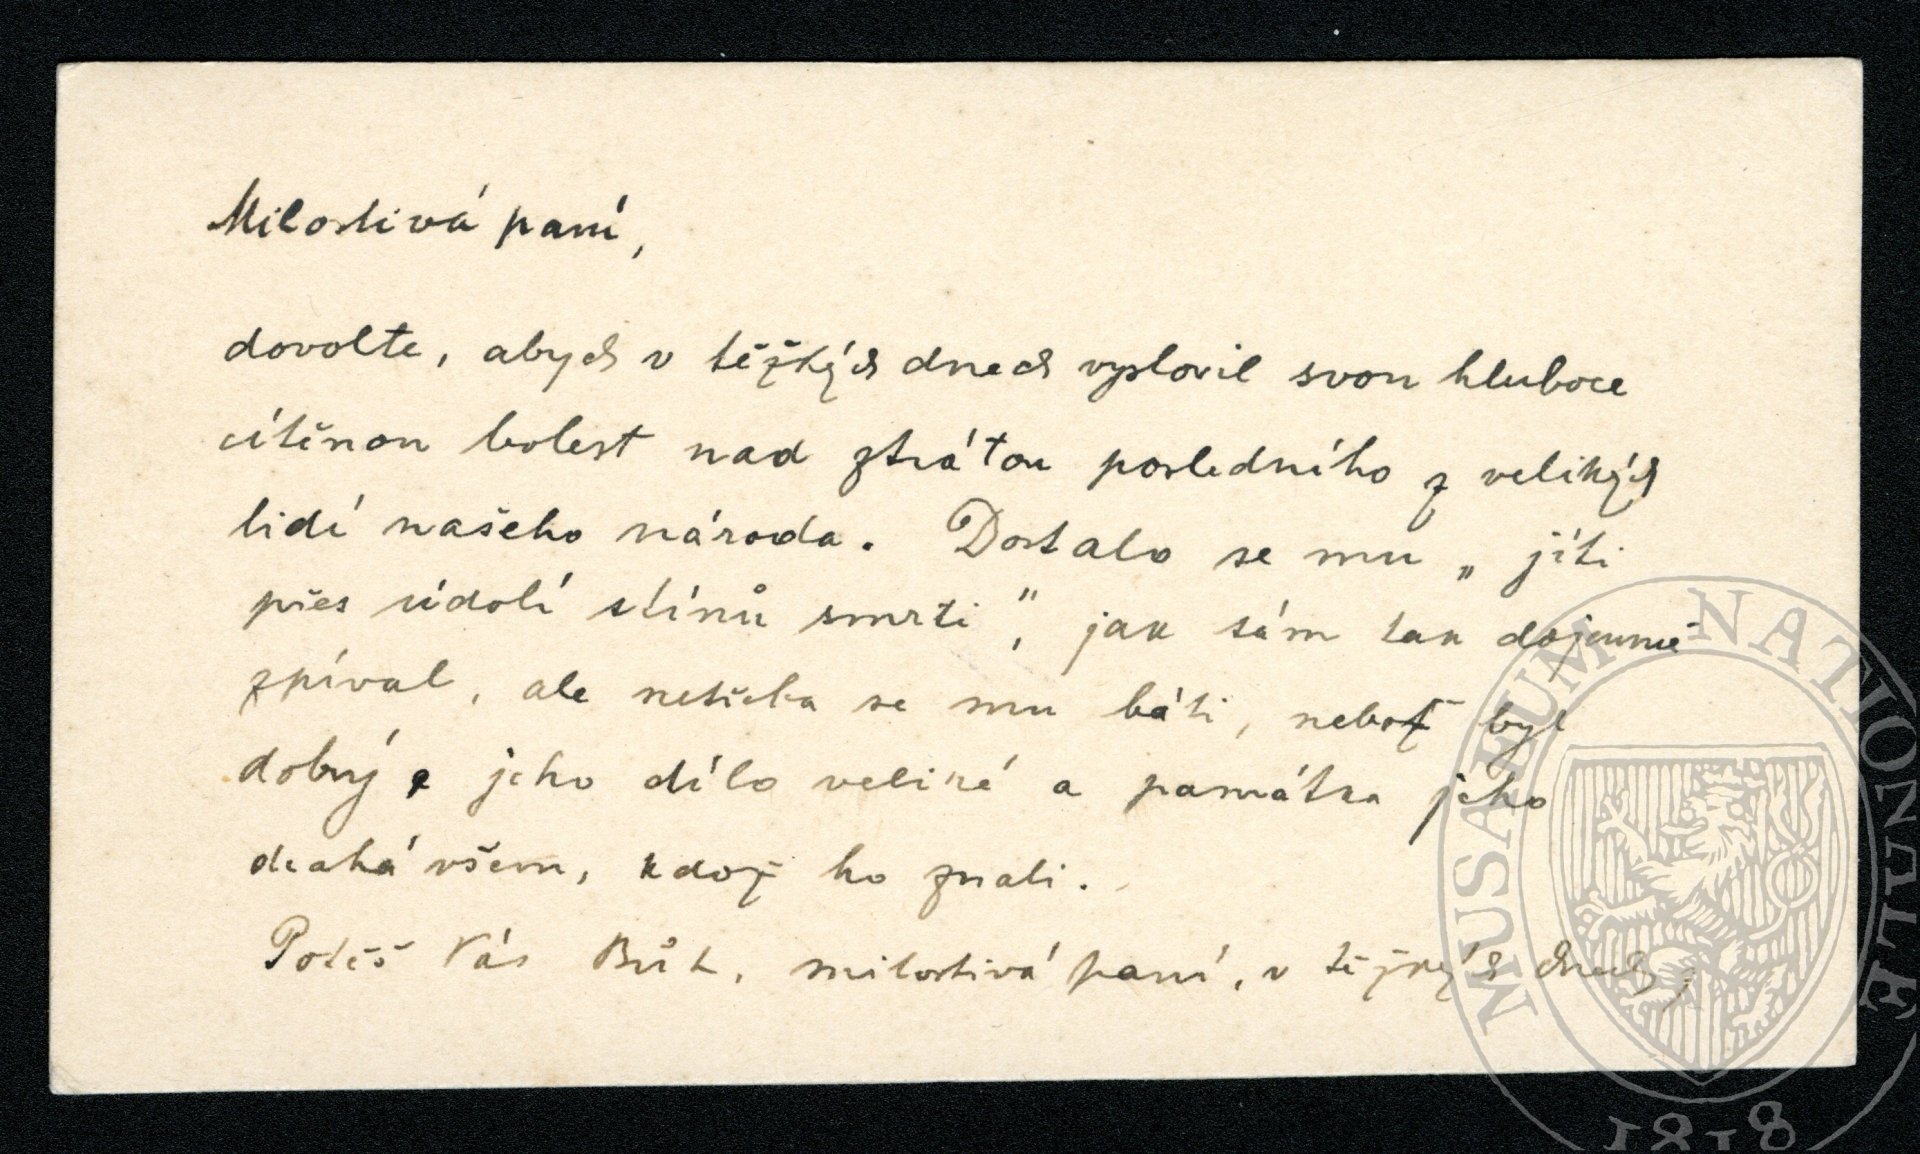 Milostivá paní,
dovolte, abych v těžkých dnech vyslovil svou hluboce
cítěnou bolest nad ztrátou posledního z velikých
lidí našeho národa. Dostalo se mu „jíti
přes údolí stínů smrti", jak sám tak dojemně
zpíval, ale netřeba se mu báti, neboť byl
dobrý, jeho dílo veliké a památka jeho
drahá všem, kdož ho znali.
Potěš Vás Bůh, milostivá paní, v těžkých dnech,
MUSAEUM NATIONALE
1818